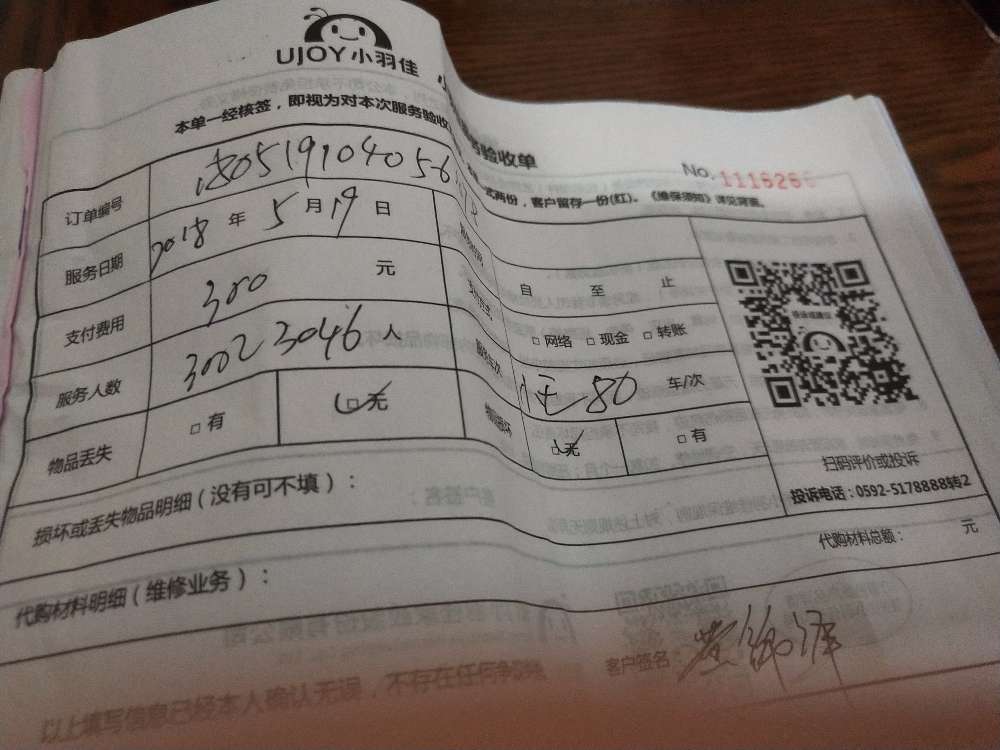 UJOY小羽佳
验收单
No. 1116266
本单一经核签，即视为对本次服务验收
式两份，客户留存一份(红)。《维保须知》详见背面。
订单编号 180519104056
服务日期 2018 年 5 月 19 日
自 至 止
支付费用 300 元
□网络 □现金 □转账
服务人数 3002 3046 人
服务车次 80 车/次
物品丢失 □有 □无
□无 □有
扫码评价或投诉
投诉电话：0592-5178888转2
损坏或丢失物品明细（没有可不填）：
代购材料明细（维修业务）：
代购材料总额： 元
客户签名：
以上填写信息已经本人确认无误，不存在任何争